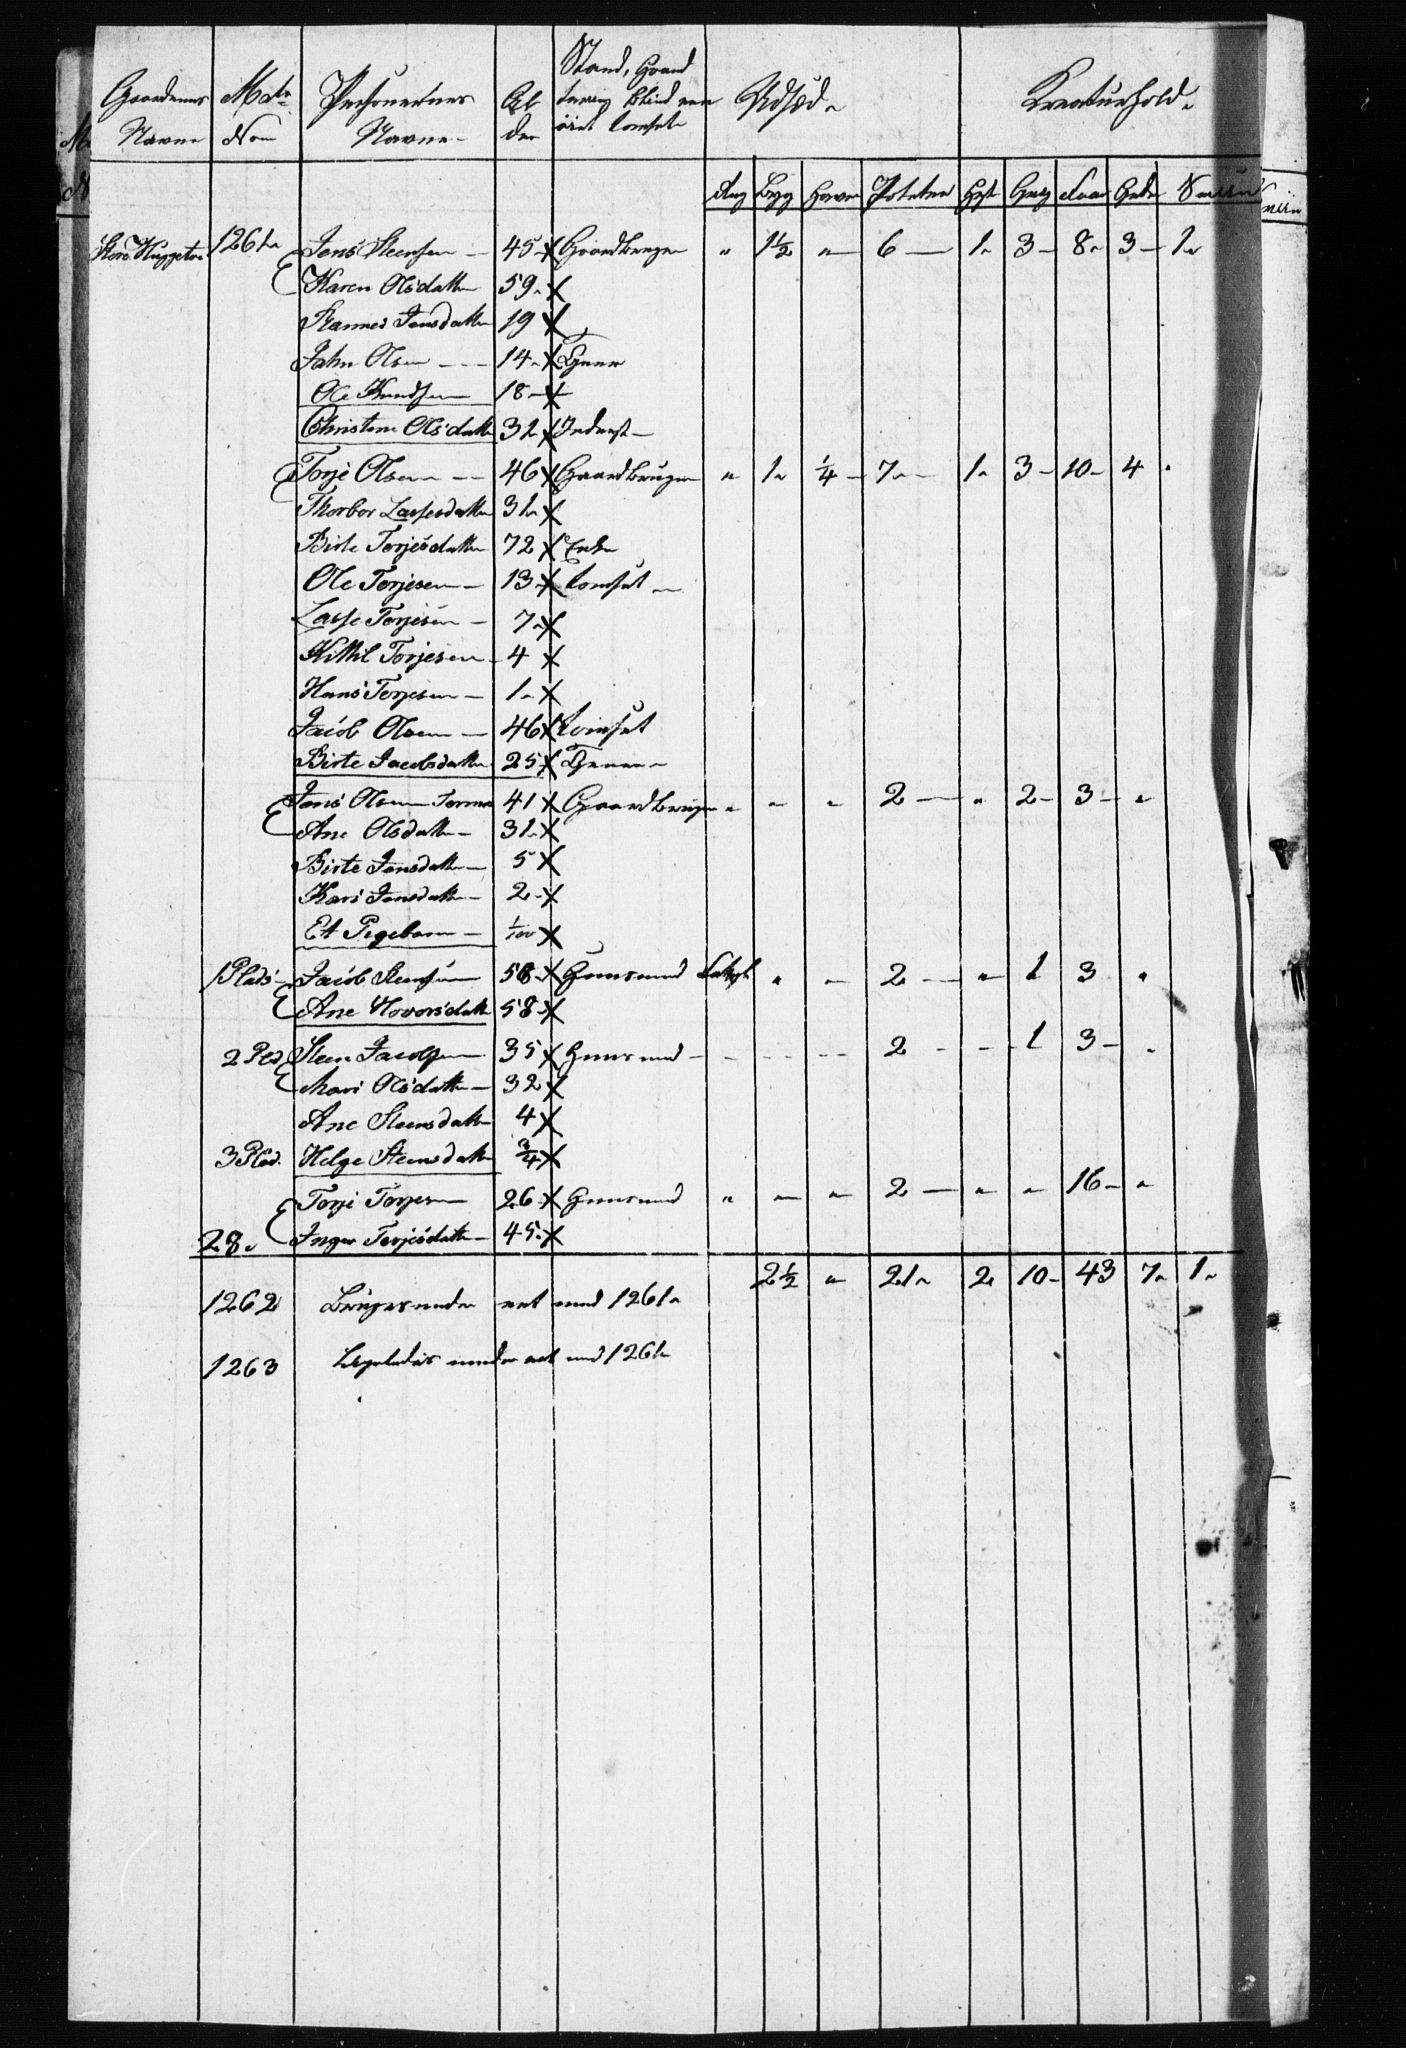 Gaardenes Navne | Matr. No | Personernes Navne | Alder | Stand, Haand | Udsæd | Kreaturhold
Rug | Byg | Havre | Poteter | Hest | | Faar | Geder | Sviin
1261 | Jens Steensen | 45 | Gaardbruger | " | 1½ | " | 6 | 1 | 3 | 8 | 3 | 1
Karen Olsdatter | 59
Jensdatter | 19
John Olsen | 14 | Tjener
Ole Knudsen | 18
Christene Olsdatter | 32 | Inderst
Torje Olsen | 46 | Gaardbruger | " | 1 | ¼ | 7 | 1 | 3 | 10 | 4 | "
Thorbor Lassesdatter | 31
Birte Torjesdatter | 72 | Enke
Ole Torjesen | 13
Lasse Torjesen | 7
Kittil Torjesen | 4
Hans Torjesen | 1
Jacob Olsen | 46
Birte Jacobsdatter | 25 | Tjener
Jens Olsen | 41 | Gaardbruger | " | " | " | 2 | " | 2 | 3 | "
Ane Olsdatter | 31
Birte Jensdatter | 5
Kari Jensdatter | 2
Et Pigebarn
1 Plads | Jacob Steensen | 58 | Huusmand | " | " | 2 | " | 1 | 3 | "
Ane Hovorsdatter | 58
2 Plds | Steen Jacobsen | 35 | Huusmand | 2 | 1 | 3 | "
Mari Olsdatter | 32
Ane Steensdatter | 4
3 Plds. | Helge Steensdatter | ¾
Torje Torjesen | 26 | Huusmand | " | " | " | 2 | " | " | 16 | "
28 | Inger Torjesdatter | 45
2½ | " | 21 | 2 | 10 | 43 | 7 | 1
1262 | Bruges under eet med 1261
1263 | under eet med 1261